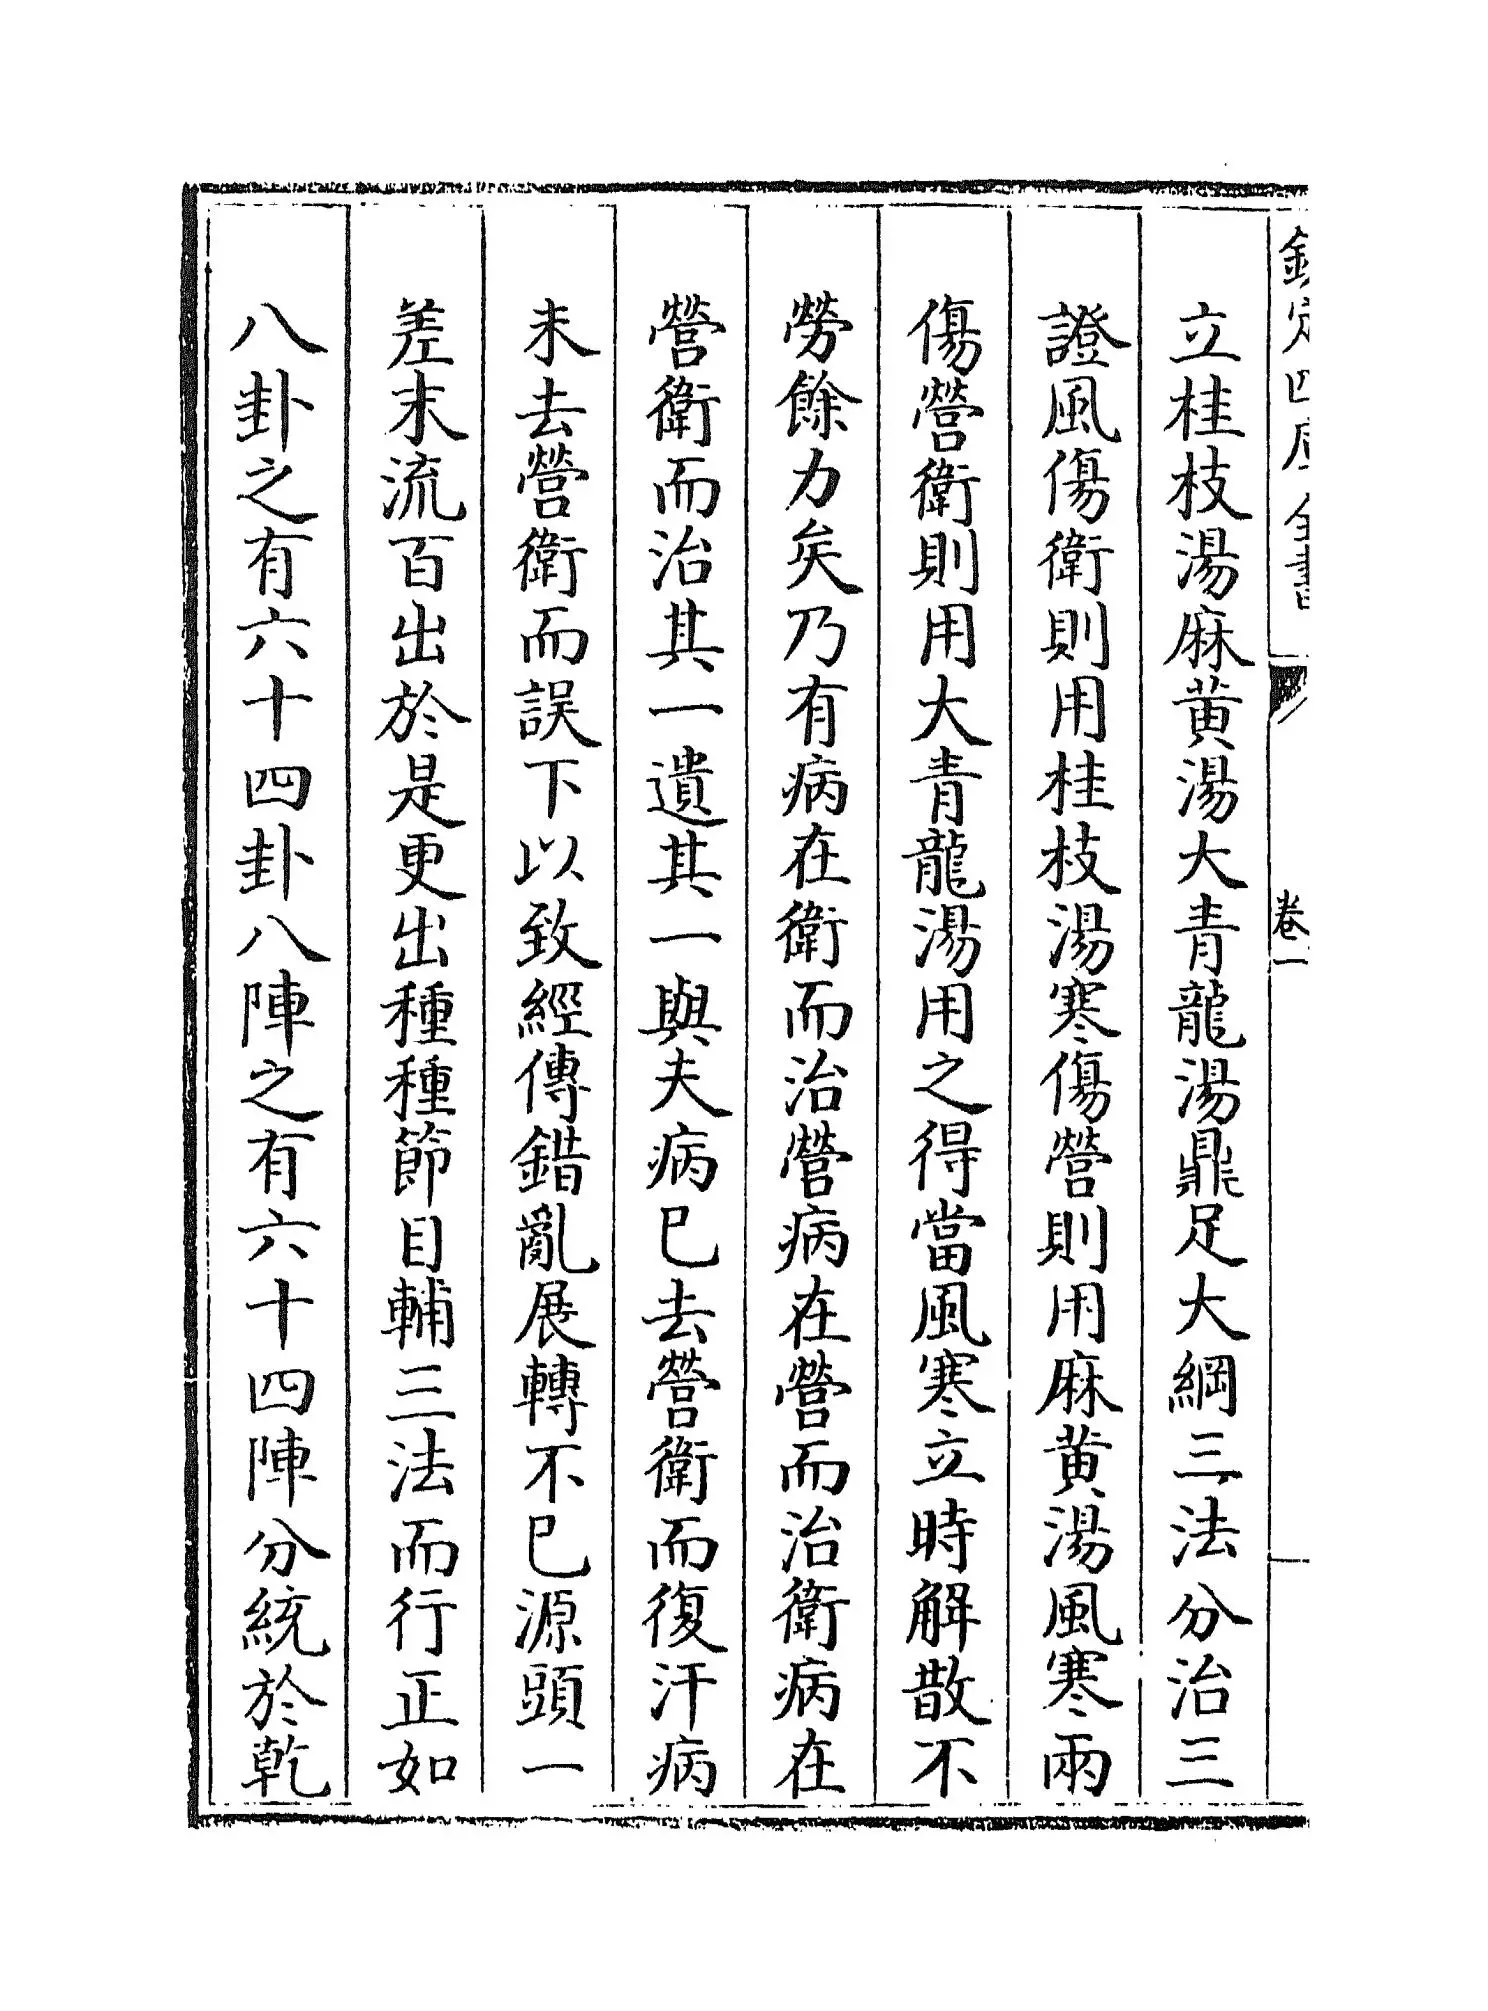 欽定四庫全書
卷一
立桂枝湯麻黄湯大青龍湯鼎足大綱三法分治三
證風傷衛則用桂枝湯寒傷營則用麻黄湯風寒兩
傷營衛則用大青龍湯用之得當風寒立時解散不
勞餘力矣乃有病在衛而治營病在營而治衛病在
營衛而治其一遺其一與夫病已去營衛而復汗病
未去營衛而誤下以致經傳錯亂展轉不已源頭一
差末流百出於是更出種種節目輔三法而行正如
八卦之有六十四卦八陣之有六十四陣分統於乾